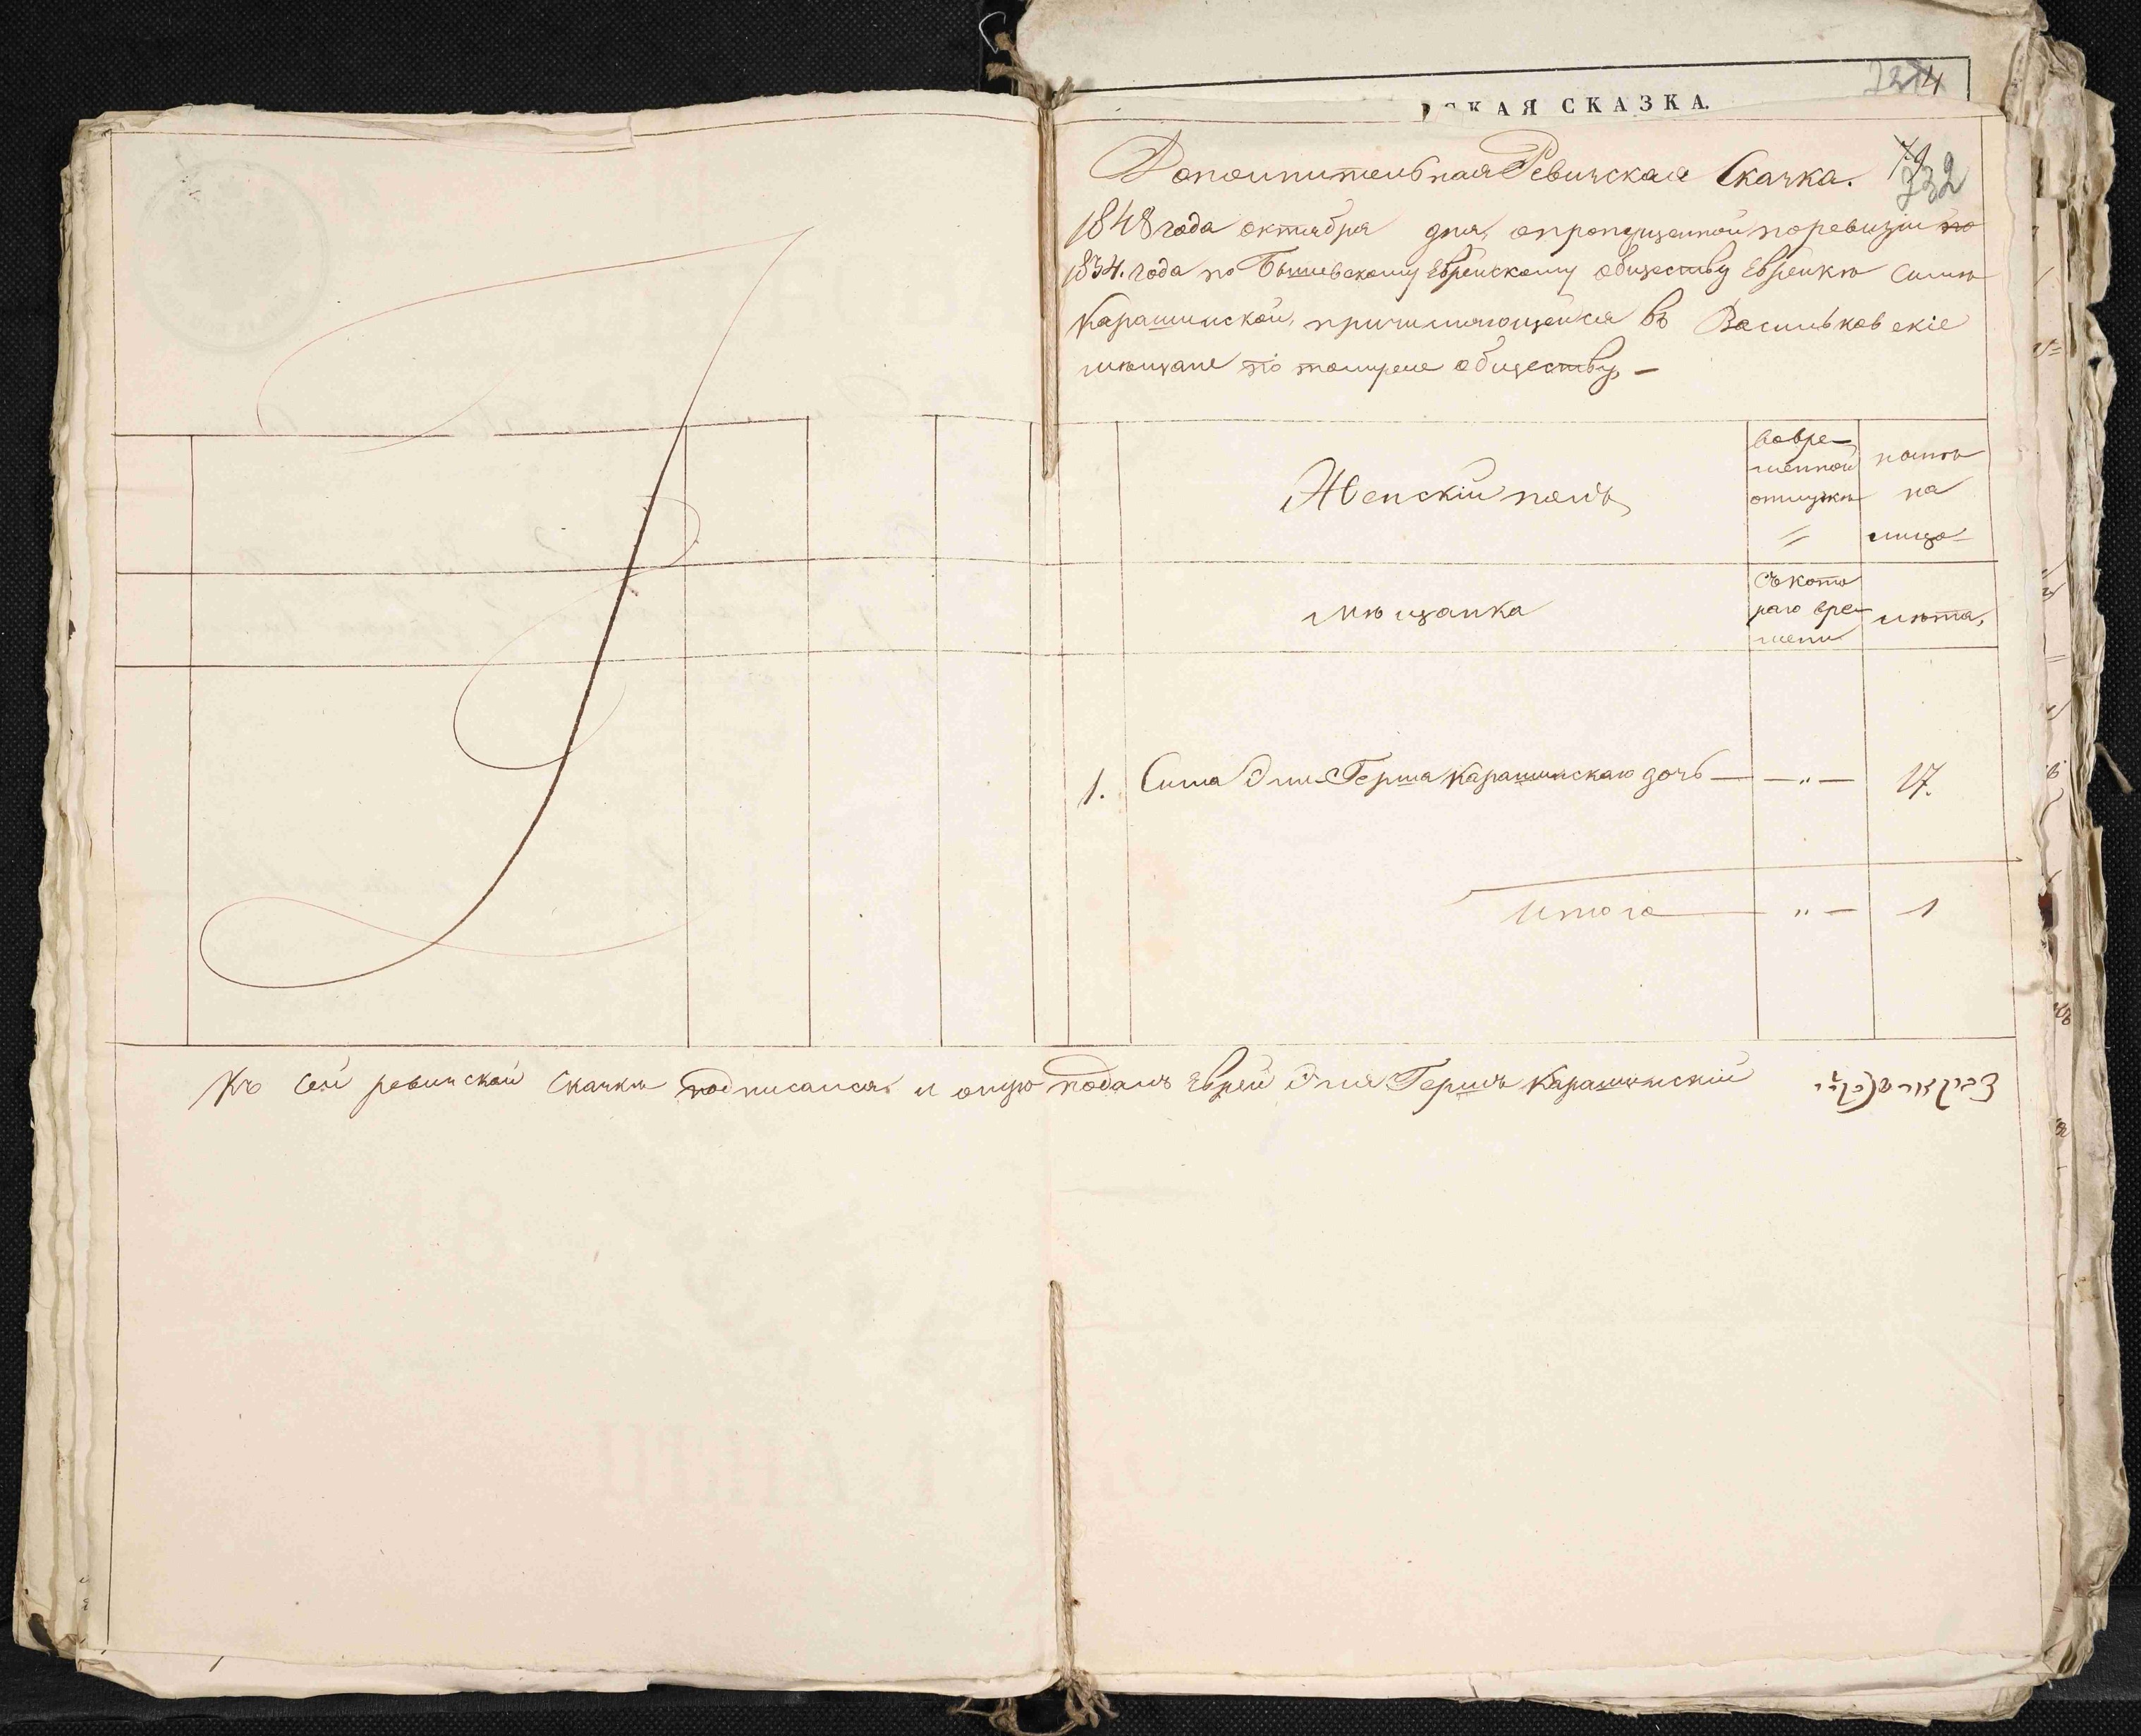 КАЯ СКАЗКА.
Дополнительная Ревизская Сказка.
232
1848 года октября дня, опропущенной поревизіи
1834. года по Бышевскому Еврейскому обществу Еврейкѣ Симѣ
Карашинской, причисляющейся въ Васильковскіе
мѣщане по томуже обществу, —
Женскій полъ
вовре-
менной
отлучкѣ
налич
на
лицо
Мѣщанка
Съкото
раго вре-
мени
лѣта,
1. Сима Эли Герша Карашинскаго дочь — — „ — 17.
Итого — „ — 1
Къ сей ревизской сказкѣ подписался и оную подалъ Еврей Эля Гершъ Карашинскій